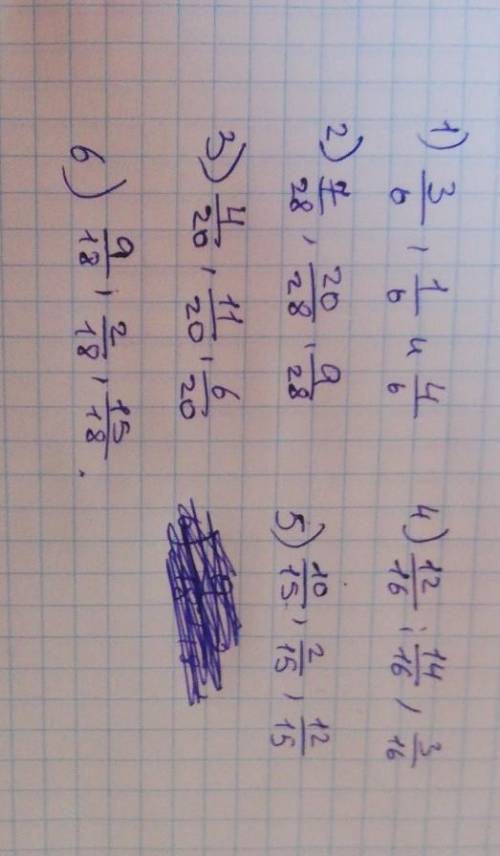 1) 3/6, 1/6 и 4/6
2) 7/28, 20/28, 9/28
3) 4/20, 11/20, 6/20
6) 9/18, 2/18, 15/18.
4) 12/16; 14/16, 3/16
5) 10/15, 2/15, 12/15